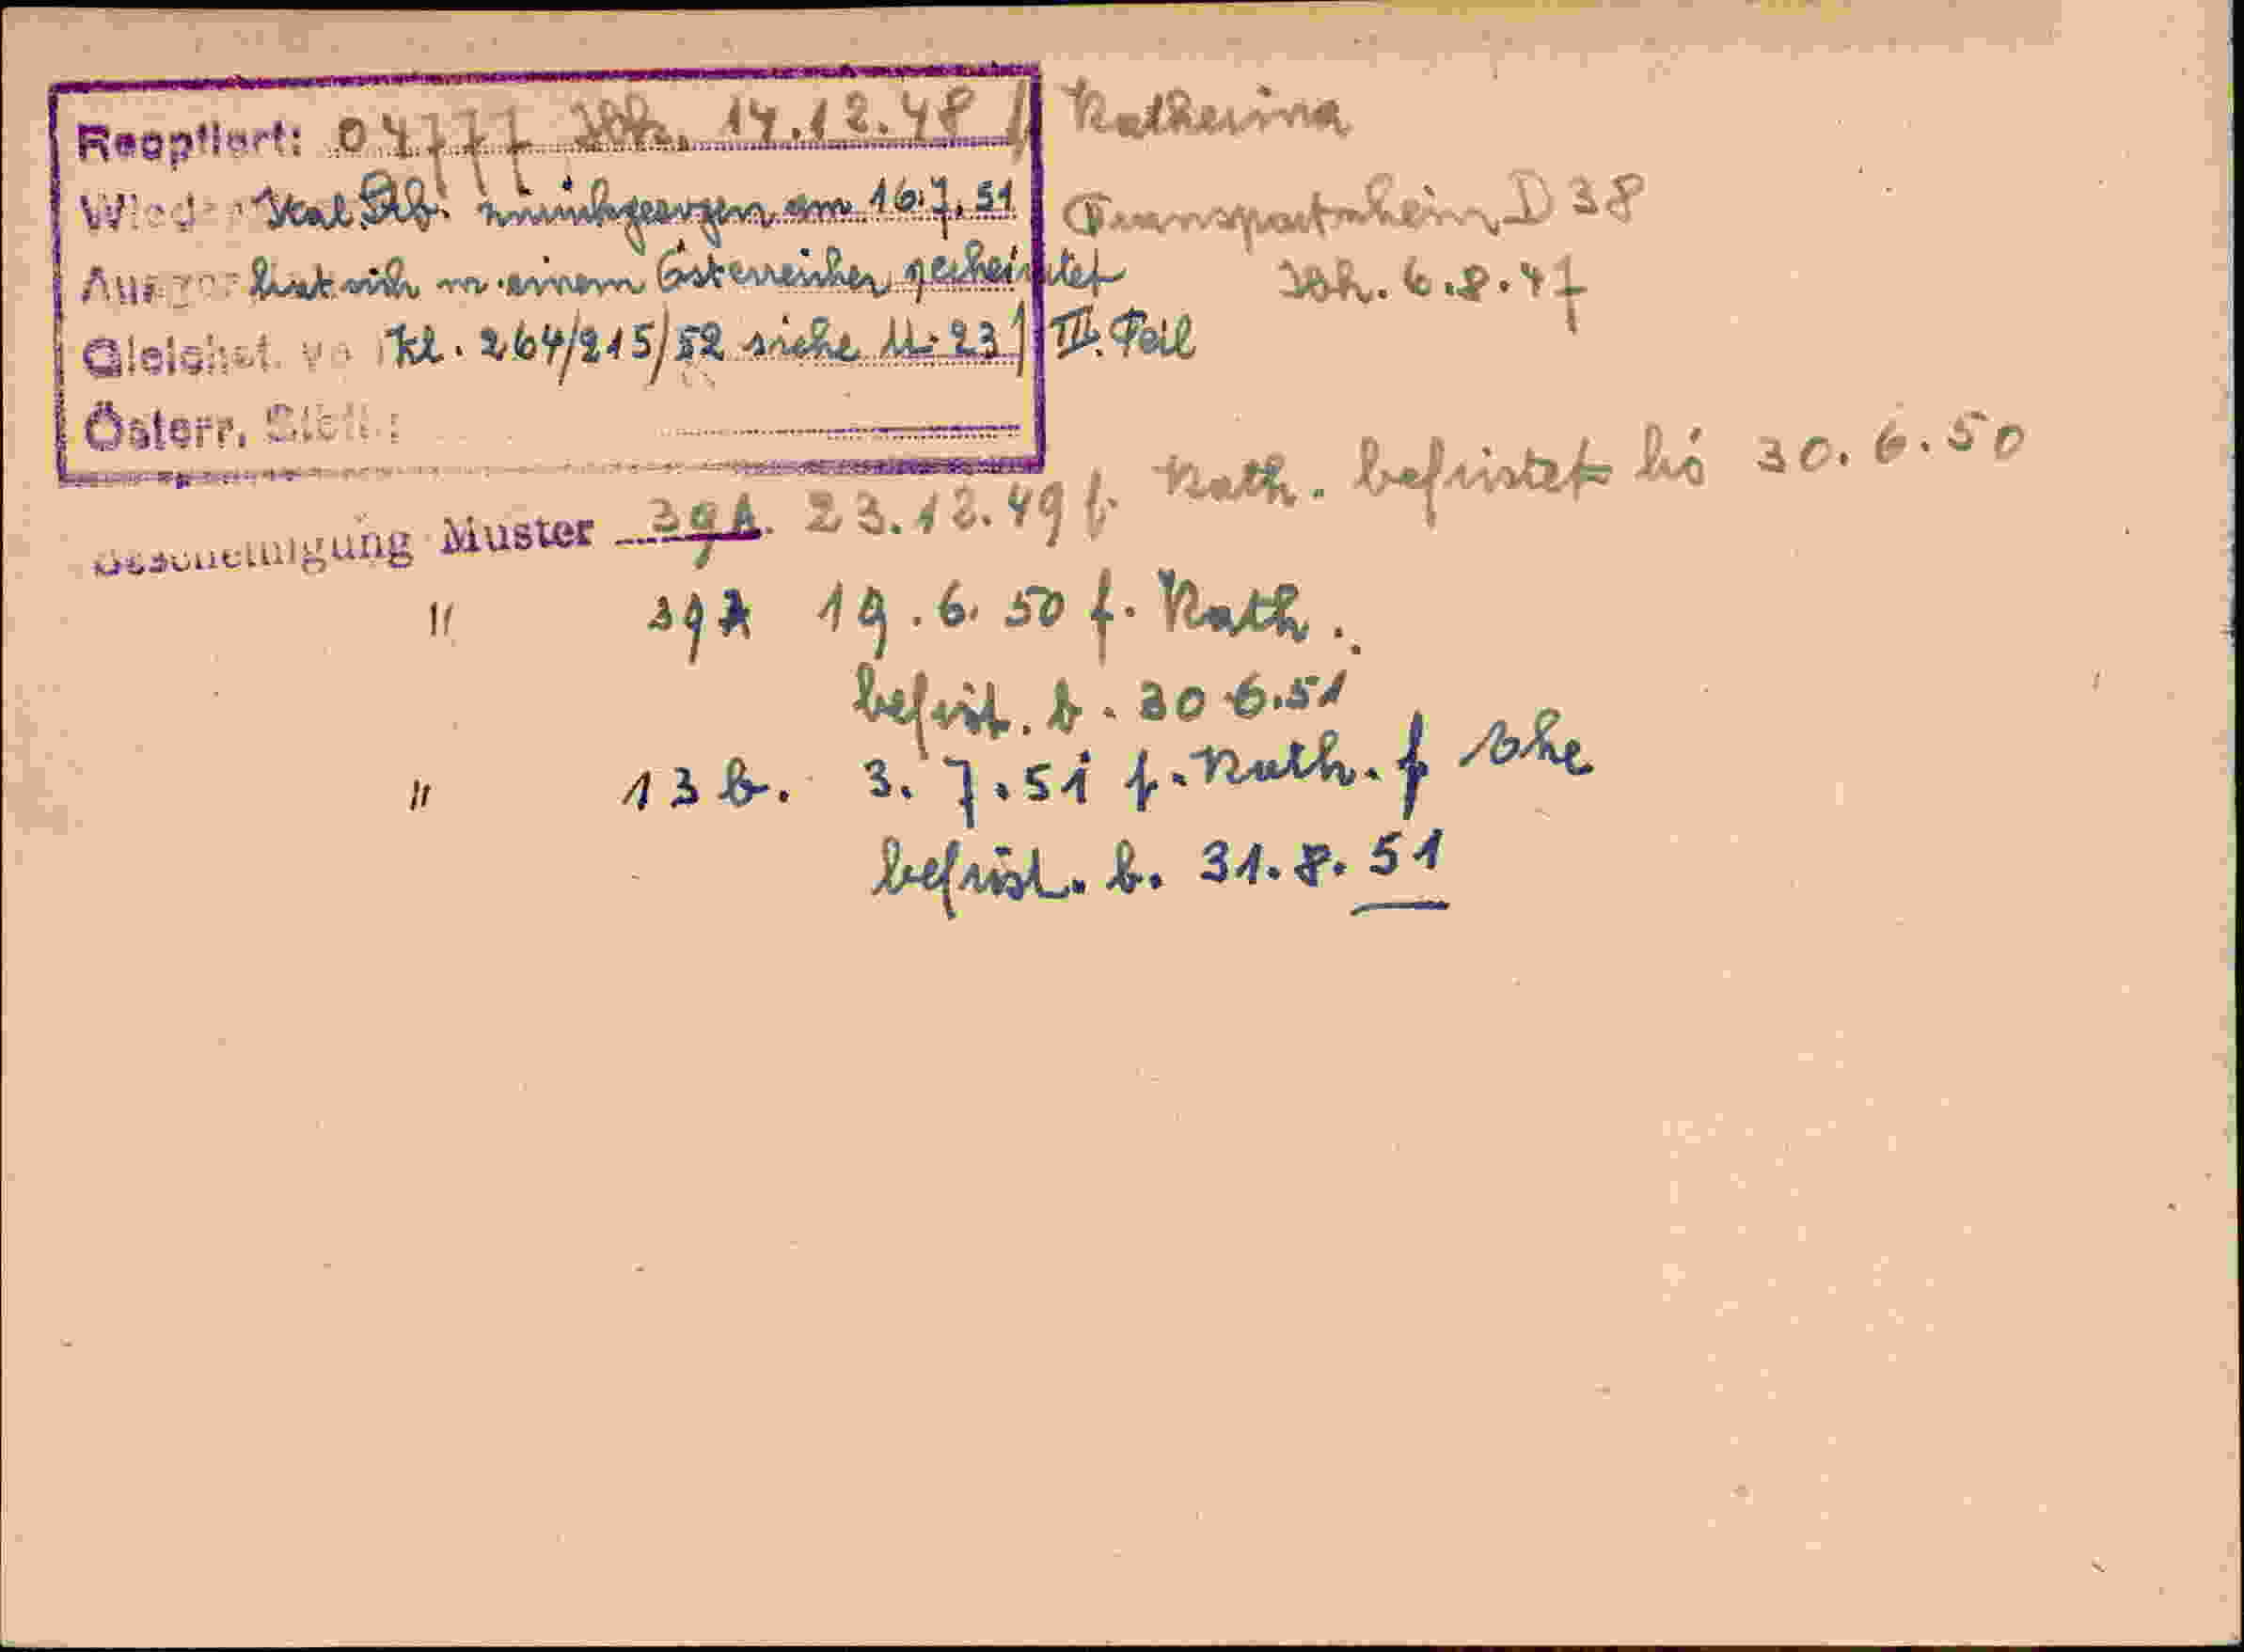 Reoptiert: 04777 Ibk. 14.12.48 Katherina
Wieder Ital. Stb. zurückgezogen am 16.7.51 Transportnheim D 38
Ausger hat sich m. einem Österreicher geheiratet Ibk. 6.8.47
Gleichst. vo Kl. 264/215/52 siehe U. 23 III. Teil
Österr. Stb.:
Bescheinigung Muster 39A. 23.12.49 f. Kath. befristet bis 30.6.50
" 39A 19.6.50 f. Kath.
befrist. b. 30.6.51
" 13 b. 3.7.51 f. Kath. f Ehe
befrist. b. 31.8.51